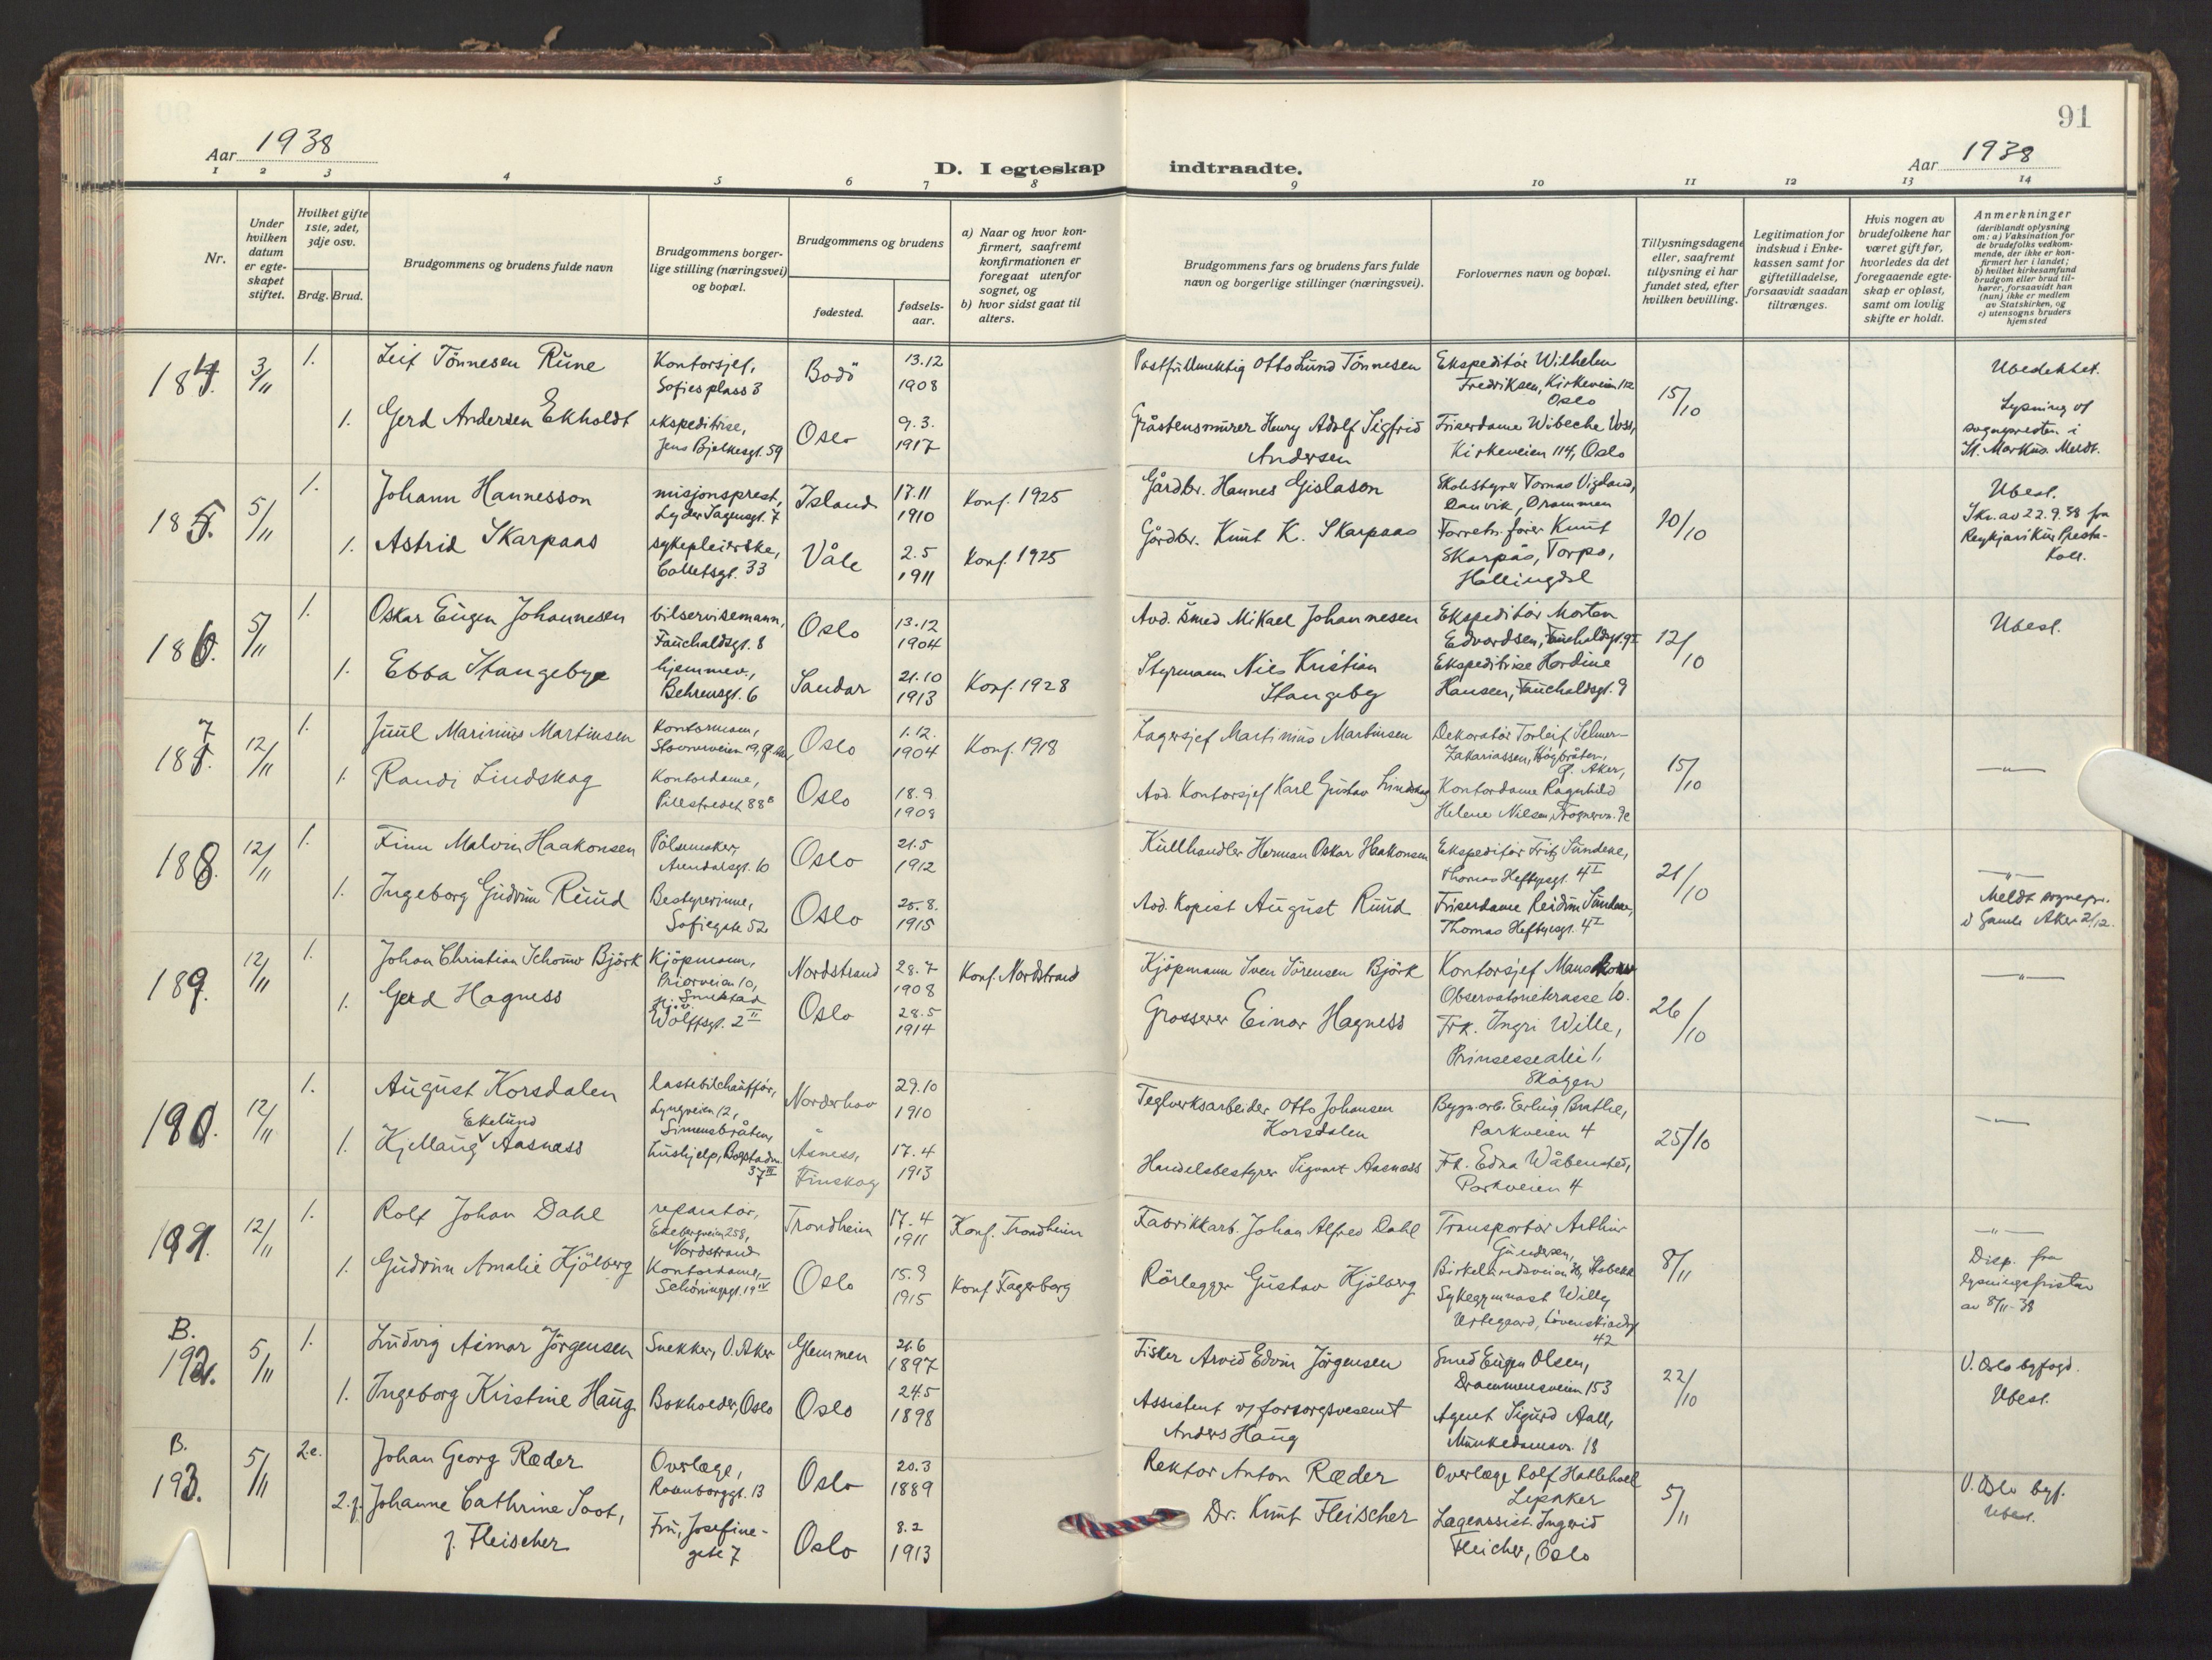 91
Aar 1938
D. I egteskap indtraadte.
Aar 1938
1 2 3 4 5 6 7 8 9 10 11 12 13 14
Nr.
Under hvilken datum er egteskapet stiftet.
Hvilket gifte 1ste, 2det, 3dje osv.
Brdg. Brud.
Brudgommens og brudens fulde navn
Brudgommens borgerlige stilling (næringsvei) og bopæl.
Brudgommens og brudens
fødested.
fødselsaar.
a) Naar og hvor konfirmert, saafremt konfirmationen er foregaat utenfor sognet, og
b) hvor sidst gaat til alters.
Brudgommens fars og brudens fars fulde navn og borgerlige stillinger (næringsvei).
Forlovernes navn og bopæl.
Tillysningsdagene eller, saafremt tillysning ei har fundet sted, efter hvilken bevilling.
Legitimation for indskud i Enkekassen samt for giftetilladelse, forsaavidt saadan tiltrænges.
Hvis nogen av brudefolkene har været gift før, hvorledes da det foregaaende egteskap er opløst, samt om lovlig skifte er holdt.
Anmerkninger (deriblandt oplysning om: a) Vaksination for de brudefolks vedkommende, der ikke er konfirmert her i landet; b) hvilket kirkesamfund brudgom eller brud tilhører, forsaavidt han (hun) ikke er medlem av Statskirken, og c) utensogns bruders hjemsted
184. 3/11 1. Leif Tönnesen Rune
Kontorsjef, Sofies plass 3
Bodö 13.12 1908
Postfullmektig Otto Lund Tönnesen
Ekspeditör Wilhelm Fredriksen, Kirkeveien 112 Oslo
15/10
Ubeslektet.
1. Gerd Andersen Ekholdt
ekspeditrise, Jens Bjelkesgt. 59
Oslo 9.3. 1917
Gråstensmurer Henry Adolf Sigfrid Andersen
Friserdame Wibeche Voss, Kirkeveien 114, Oslo
Lysning v/ sognepresten i St. Markus. Meldt.
185. 5/11 1. Johann Hannesson
misjonsprest, Lyder Sagensgt. 7
Island 17.11 1910 Konf. 1925
Gårdbr. Hannes Gislason
Skolestyrer Tomas Vigdand, Danvik, Drammen
10/10
Ubesl.
Skr. av 22.9.38 fra Reykjavikur Prestakall.
1. Astrid Skarpaas
sykepleierske, Colletsgt. 33
Våle 2.5 1911 Konf. 1925
Gårdbr. Knut K. Skarpaas
Forretn.förer Knut Skarpås, Torpo, Hallingdal
186. 5/11 1. Oskar Eugen Johannesen
bilservisemann, Fauchaldsgt. 8
Oslo 13.12 1904
Avd. smed Mikael Johannesen
Ekspeditör Morten Edvardsen, Fauchaldsgt. 9 I
12/10
Ubesl.
1. Ebba Stangebye
hjemmev., Behrensgt. 6
Sandar 21.10 1913 Konf. 1928
Styrmann Nils Kristian Stangeby
Ekspeditrise Hardine Hansen, Fauchaldsgt. 9
187. 12/11 1. Juul Marinius Martinsen
Kontormann, Stovnerveien 19,
Oslo 1.12. 1904 Konf. 1918
Lagersjef Martinius Martinsen
Dekoratör Torleif Selmer-Zakariassen, Höybråten, Ö. Aker,
15/10
— " —
1. Randi Lindskog
Kontordame, Pilestredet 88 B
Oslo 18.9 1909
Avd. Kontorsjef Karl Gustav Lindskog
Kontordame Ragnhild Helene Nilsen, Frognervn. 9c
188. 12/11 1. Finn Malvin Haakonsen
Pölsemaker, Arendalsgt. 10
Oslo 21.5 1912
Kullhandler Herman Oskar Haakonsen
Ekspeditör Fritz Sundene, Thomas Heftyesgt. 4 I
21/10
— " —
1. Ingeborg Gudrun Ruud
Bestyrerinne, Sofiegate 52
Oslo 25.8. 1915
Avd. Kopist August Ruud
Friserdame Reidun Sundene, Thomas Heftyesgt. 4 I
Meldt sognepr. i Gamle Aker 2/12.
189. 12/11 1. Johan Christian Schouw Björk
Kjöpmann, Priorveien 10, Smestad
Nordstrand 28.7 1908 Konf. Nordstrand
Kjöpmann Sven Sörensen Björk
Kontorsjef Observatorieterasse 10.
26/10
— " —
1. Gerd Hagness
hj.v. Wolffsgt. 2 II
Oslo 28.5 1914
Grosserer Einar Hagness
Frk. Ingri Wille, Prinsessealle 1, Skögen
190. 12/11 1. August Korsdalen
lastebilchaufför, Lyngveien 12, Simensbråten,
Norderhov 29.10 1910
Teglverksarbeider Otto Johansen Korsdalen
Bygn.arb. Erling Brathe, Parkveien 4
25/10
— " —
1. Kjellaug Ekelund Aasnæss
hushjelp, Bogstadv. 37 III
Åsness, Finskog 17.4 1913
Handelsbestyrer Sigvart Aasnæss
Frk. Edna Wåbensted, Parkveien 4
191. 12/11 1. Rolf Johan Dahl
reparatör, Ekebergveien 258, Nordstrand
Trondheim 17.4 1911 Konf. Trondheim
Fabrikkarb. Johan Alfred Dahl
Transportör Arthur Gundersen, Birkelundsveien Stabekk
8/11
— " —
1. Gudrun Amalie Kjölberg
Kontordame, Schöningsgt. 19 IV
Oslo 15.9 1915 Konf Fagerborg
Rörlegger Gustav Kjölberg
Sykegymnast Willy Urtegaard, Lövenskioldsgt 42
Disp. fra lysningsfristen av 8/11-38
B. 192. 5/11 1. Ludvig Aimar Jörgensen
Snekker, V. Aker
Glemmen 21.6 1897
Fisker Arvid Edvin Jörgensen
Smed Eugen Olsen, Drammensveien 153
22/10
V. Oslo byfogd. Ubesl.
1. Ingeborg Kirstine Haug
Bokholder, Oslo
Oslo 24.5 1898
Assistent v/ forsorgsvesenet Anders Haug
Agent Sigurd Aall, Munkedamsv. 18
B. 193. 5/11 2.e. Johan Georg Ræder
Overlæge, Rosenborggt. 13
Oslo 20.3 1889
Rektor Anton Ræder
Overlæge Rolf Hatlehoel Lysaker
5/11
V. Oslo byf. Ubesl.
2.f. Johanne Cathrine Soot, f. Fleischer
Fru, Josefinegate 7
Oslo 8.2 1913
Dr. Knut Fleischer
Lægeassist. Ingerid Fleicher, Oslo